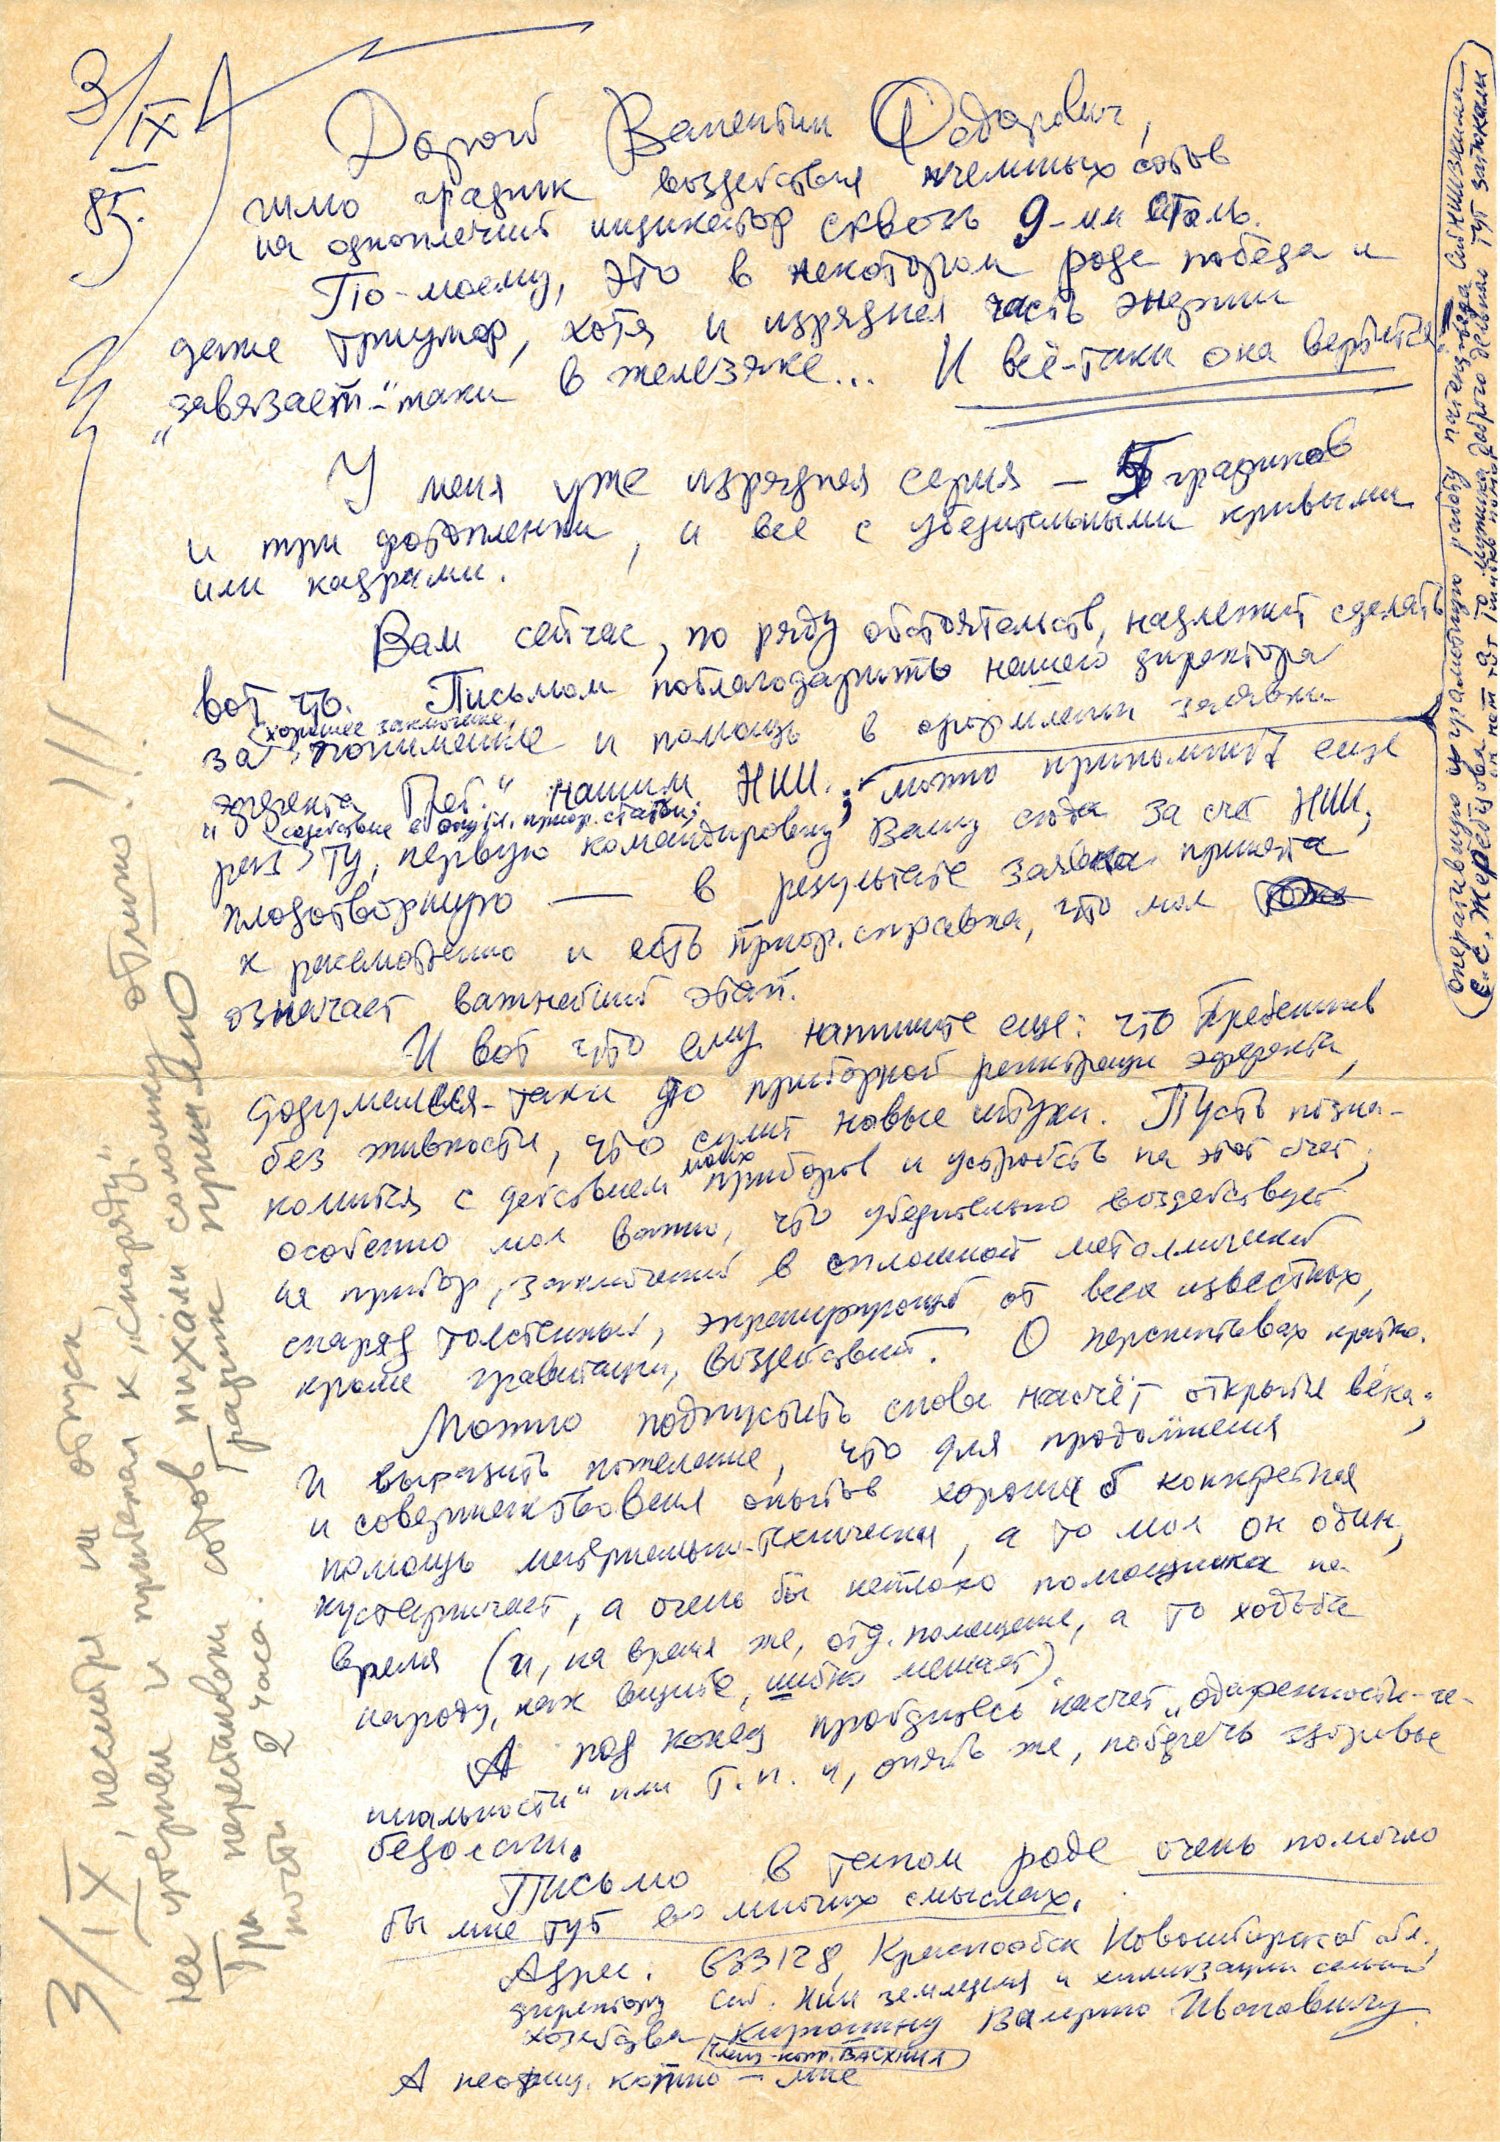 3/IX 85.
Дорогой Валентин Федорович,
шлю график воздействия пчелиных сотов
на одноплечий индикатор сквозь 9-мм сталь.
По-моему, это в некотором роде победа и
даже триумф, хотя и изрядная часть энергии
„завязает"-таки в железяке... И всё-таки она вертится!
У меня уже изрядная серия — 5 графиков
и три фотопленки, и все с убедительными кривыми
или кадрами.
Вам сейчас, по ряду обстоятельств, надлежит сделать
вот что. Письмом поблагодарить нашего директора
за хорошее заключение, понимание и помощь в оформлении заявки
„эффекта Греб." нашим НИИ; можно припомнить еще
содействие в приор. статьи;
рек ту, первую командировку Вашу сюда за счет НИИ,
плодотворную — в результате заявка принята
к рассмотрению и есть приор. справка, что мол
означает важнейший этап.
И вот что ему напишите еще: что Гребенников
додумался-таки до приборной регистрации эффекта,
без живности, что сулит новые штуки. Пусть позна-
комится с действием моих приборов и устройств на этот счет;
особенно мол важно, что убедительно воздействует
на прибор, заключенный в сплошной металлический
снаряд толстенный, экранирующий от всех известных,
кроме гравитации, воздействий. О перспективах кратко.
Можно подпустить слова насчёт открытия века;
и выразить пожелание, что для продолжения
и совершенствования опытов хороша б конкретная
помощь материально-техническая, а то мол он один,
кустарничает, а очень бы неплохо помощника на
время (и, на время же, отд. помещение, а то ходьба
народу, как видите, шибко мешает).
А под конец пройдитесь насчет „одаренности-ге-
ниальности" или т.п. и, опять же, поберечь здоровье
безопасн.
Письмо в таком роде очень помогло
бы мне тут во многих смыслах.
Адрес: 633128, Краснообск Новосибирской обл.,
директору Сиб. НИИ земледелия и химизации сельск.
хозяйства Кирюшину Валерию Ивановичу
член-корр. ВАСХНИЛ
А неофиц. копию — мне
оперативную и грамотную работу патентоведа
Е.С. Жеребцова, а то мужика доброго
3/IX, несмотря на отпуск
не утерпел и прибежал к „снаряду".
Три перестановки сотов пихали соломинку отлично!!!
почти 2 часа. График прилагаю